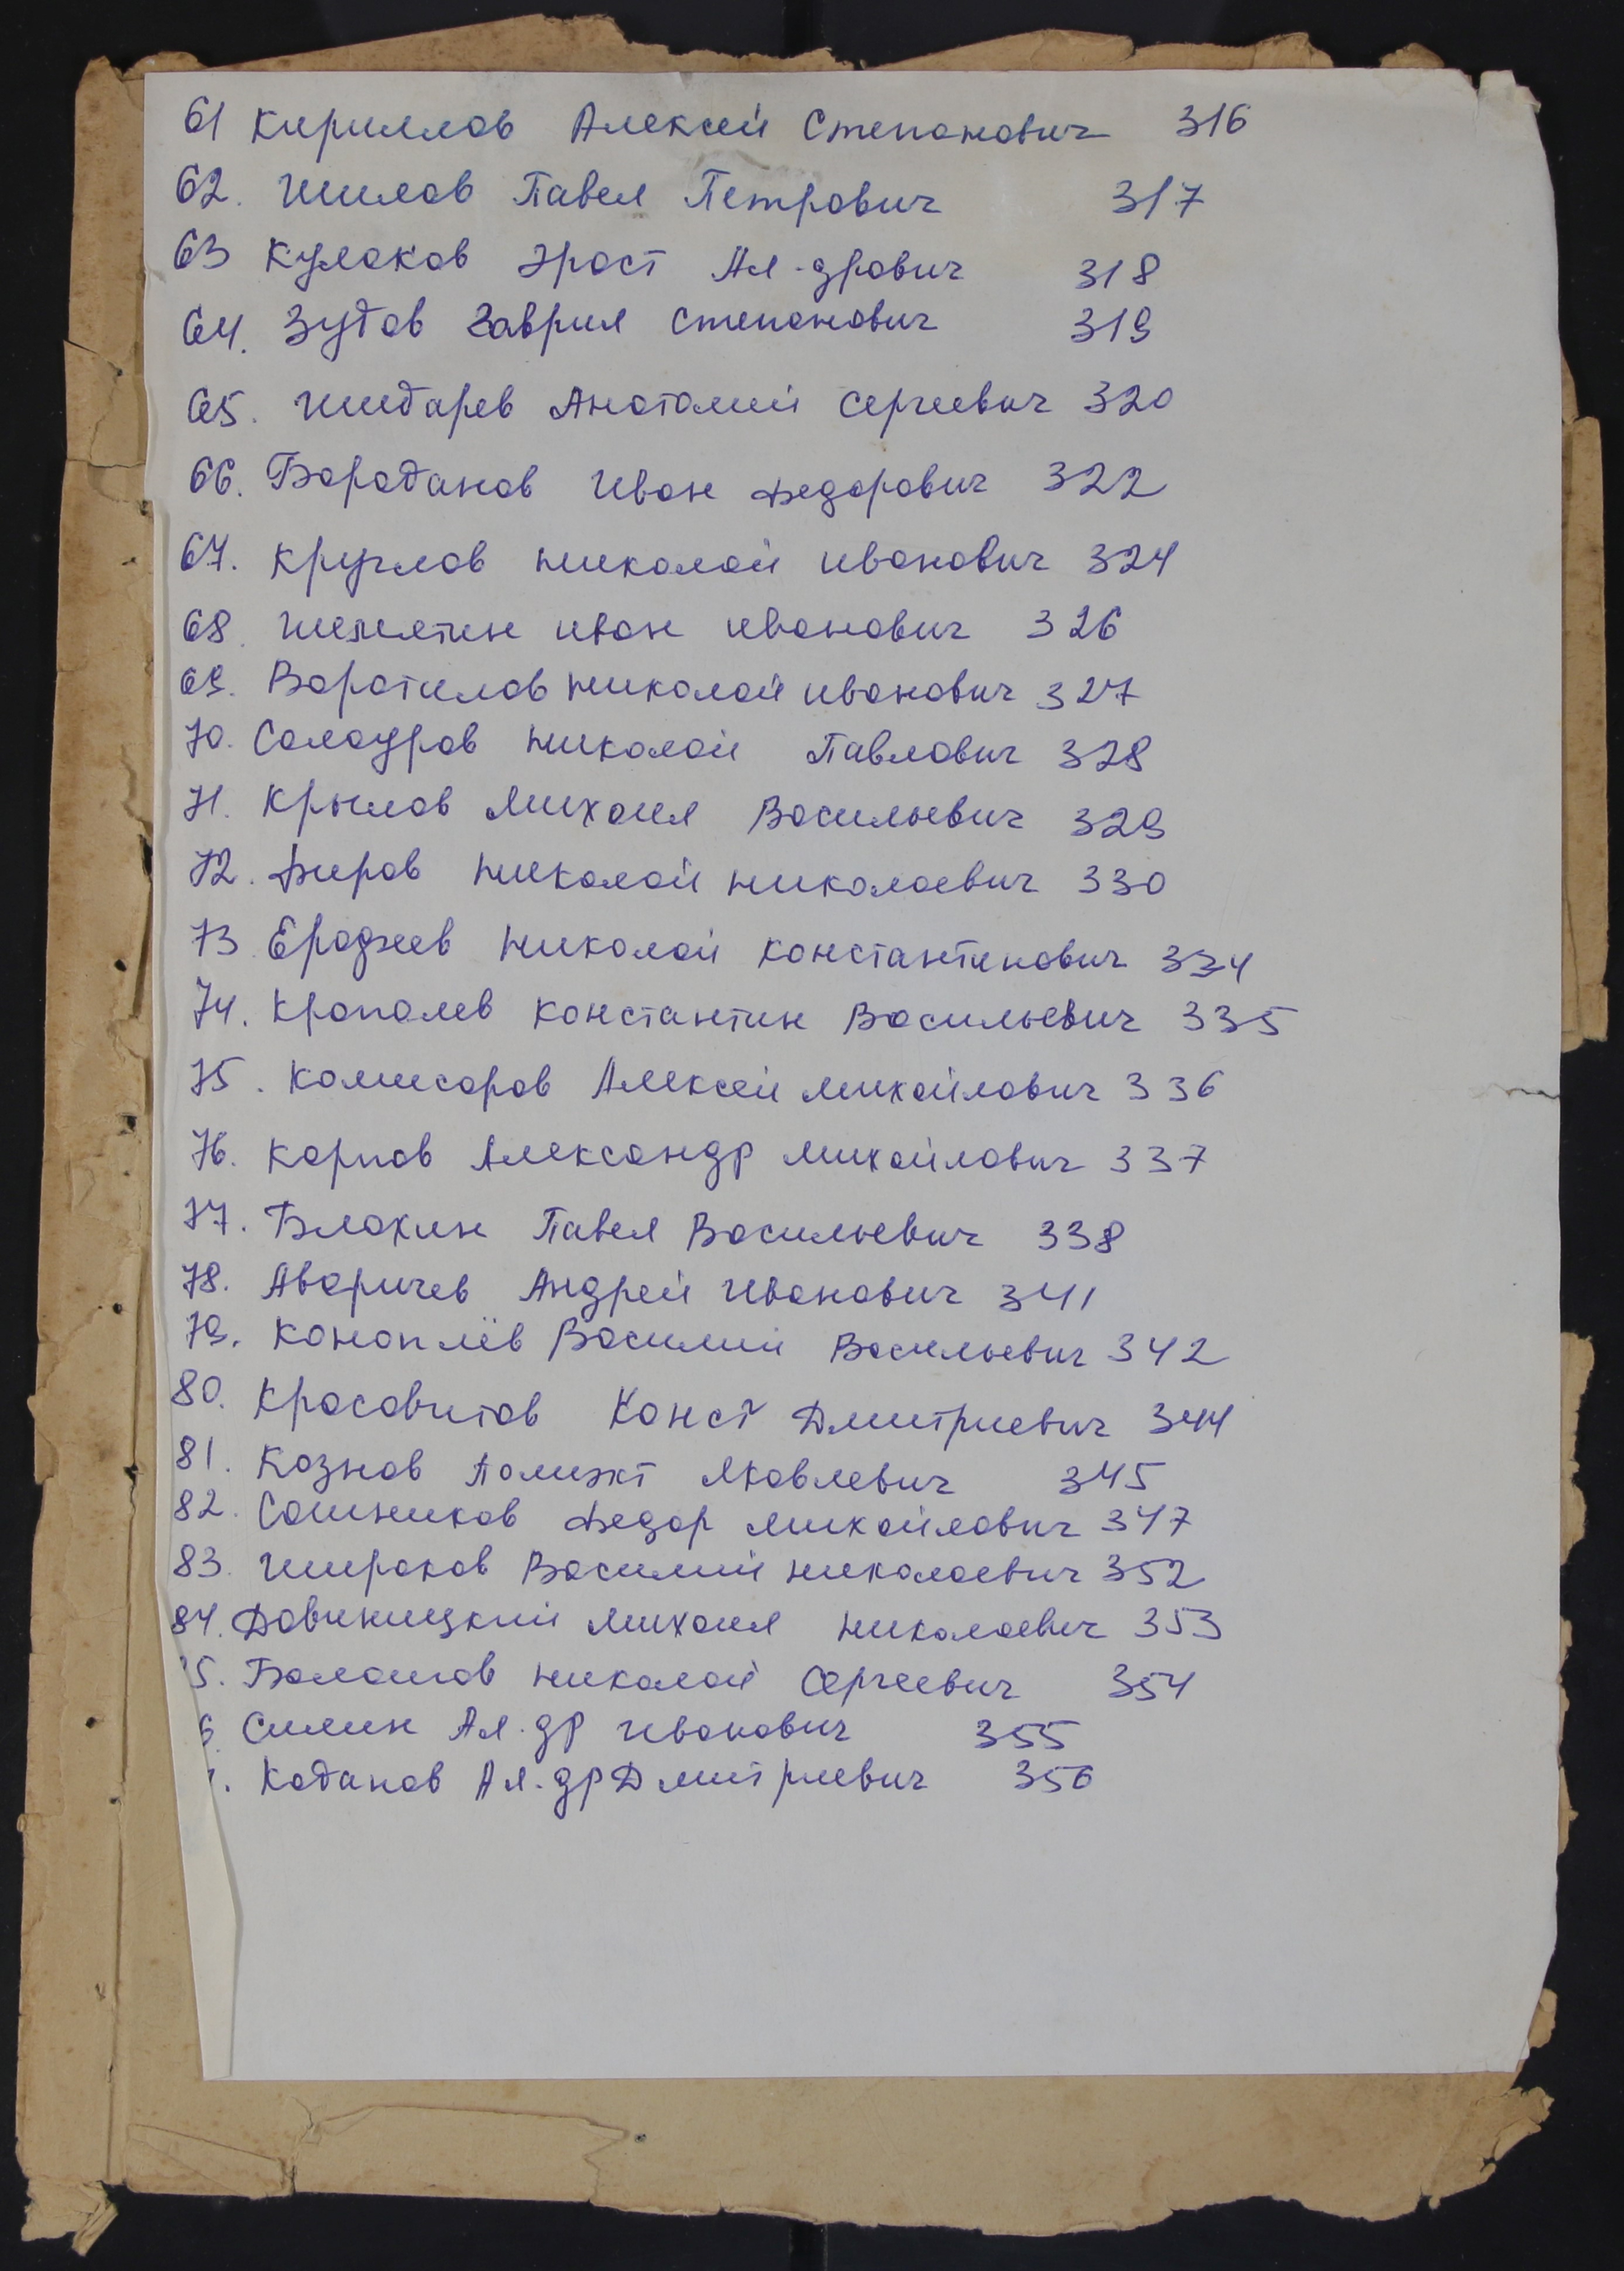 61 Кириллов Алексей Степанович 316
62. Шилов Павел Петрович 317
63 Кулаков Эраст Ал-дрович 318
64. Зубов Гаврил Степанович 319
65. Шибарев Анатолий Сергеевич 320
66. Барабанов Иван Федорович 322
67. Круглов Николай Иванович 324
68. Шемятин Иван Иванович 326
69. Воротилов Николай Иванович 327
70. Салауров Николай Павлович 328
71. Крылов Михаил Васильевич 329
72. Фиров Николай Николаевич 330
73 Ерофеев Николай Константинович 334
74. Крополев Константин Васильевич 335
75. Комисаров Алексей Михайлович 336
76. Карпов Александр Михайлович 337
77. Блохин Павел Васильевич 338
78. Аваричев Андрей Иванович 341
79. Коноплёв Василий Васильевич 342
80. Красавитов Конст Дмитриевич 344
81. Кознов Полиэкт Яковлевич 345
82. Сошников Федор Михайлович 347
83. Широков Василий Николаевич 352
84. Михаил Николаевич 353
5. Балашов Николай Сергеевич 354
6. Силин Ал.др Иванович 355
. Кабанов Ал.др Дмитриевич 356